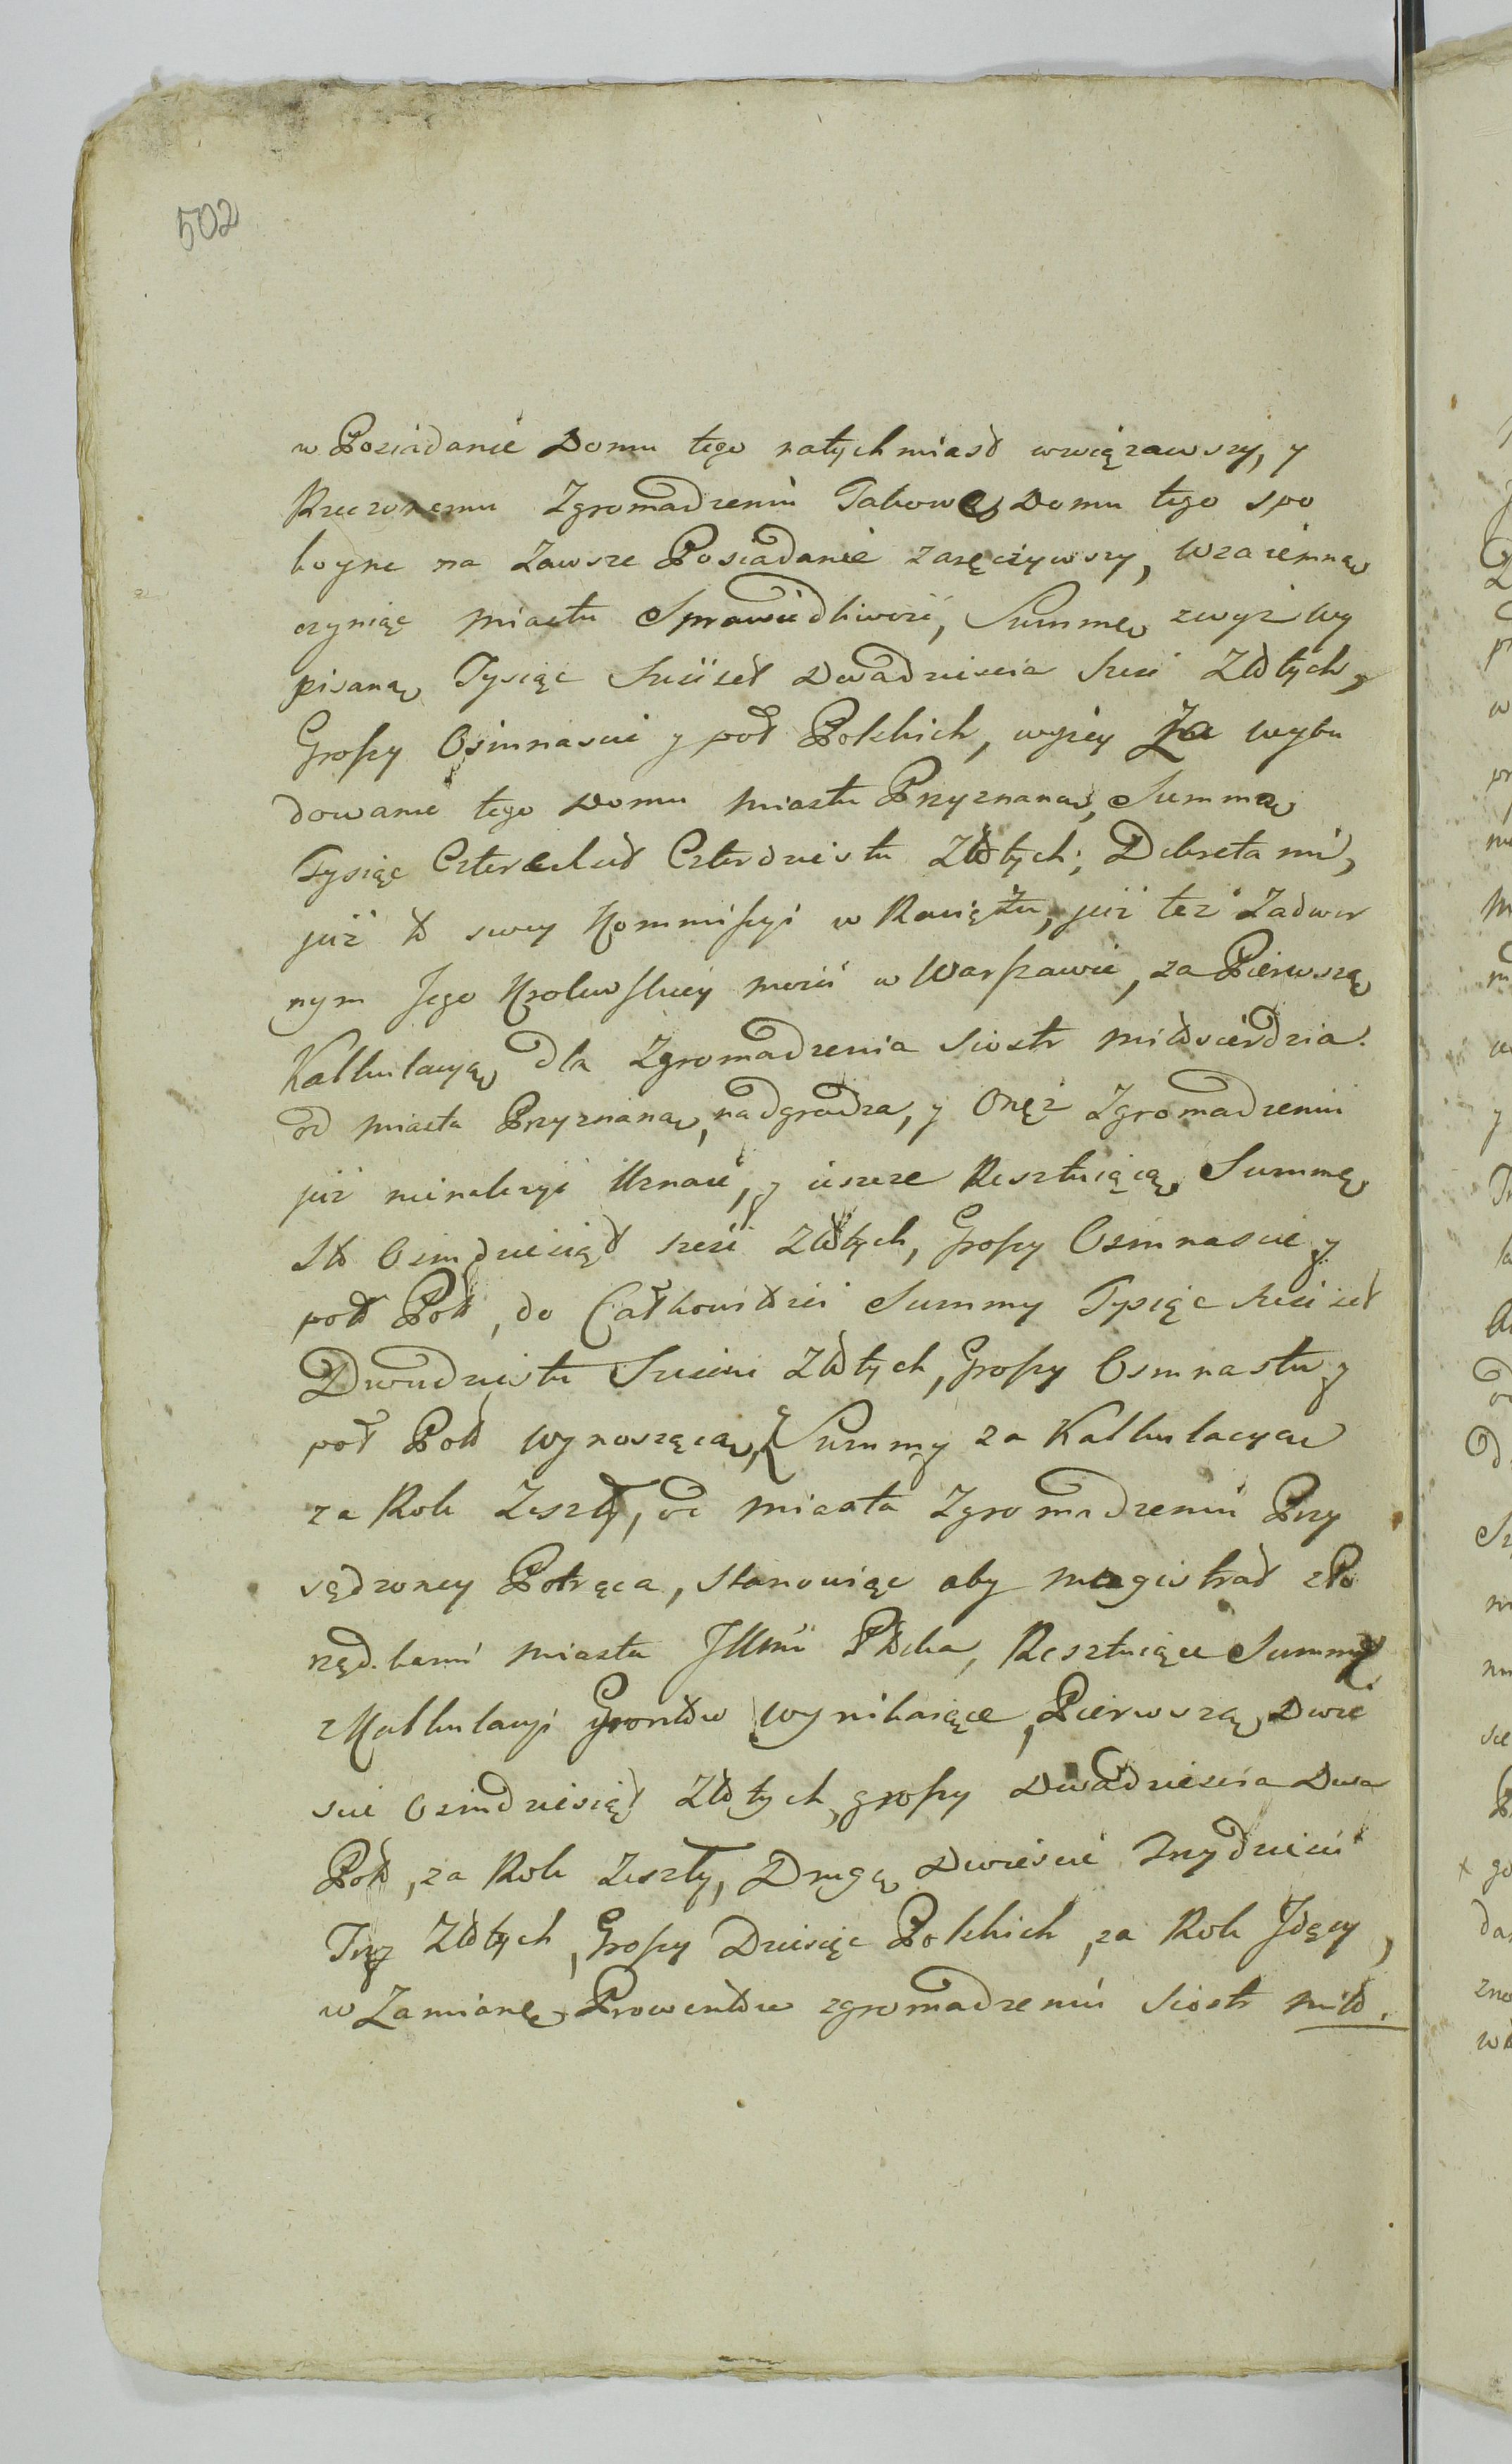 502
w Posiadanie Domu tego natychmiast wwiązawszy, y
Rzeczonemu Zgromadzeniu Takowe Domu tego spo
koyne na Zawsze Posiadanie zaręczywszy, Wzaiemną
czyniąc Miastu Sprawiedliwość, Summę zwyż wy
pisaną Tysiąc Sześćset Dwadzieścia Sześć Złotych,
Groszy Osimnaście y poł Polskich, wyżey Za wybu
dowanie tego Domu Miastu Przyznaną, Summą
Tysiąc Czterechset Czterdziestu Złotych; Dekretami,
już to swey Kommissyi w Raciążu, już też Zadwor
nym Jego Krolewskiey mości w Warszawie, za Pierwszą
Kalkulacyą dla Zgromadzenia Siostr miłosierdzia
od Miasta Przyznaną, nadgradza, y Onęż Zgromadzeniu
już nienależyć Uznaie, y ieszcze Resztuiącą Summę
Sto Osimdziesiąt sześć Złotych, Groszy Osimnaście y
poł Pol, do Całkowitości Summy Tysiąc Sześćset
Dwudziestu Sześciu Złotych, Groszy Osmnastu y
poł Pol wynoszącą, z Summy za Kalkulacyą
za Rok Zeszły, od Miasta Zgromadzeniu Przy
sądzoney Potrąca, Stanowiąc aby Magistrat zPo
rządkami Miasta JKMci Płocka, Resztuiące Summy
zKalkulacyi Grontow wynikaiące, Pierwszą Dwie
ście Osimdziesiąt Złotych, groszy Dwadzieścia Dwa
Pol, za Rok Zeszły, Drugą Dwieście Trzydzieści
Trzy Złotych, Groszy Dziesięc Polskich, za Rok Idący,
w Zamianę Prowentow zgromadzeniu Siostr Miło.